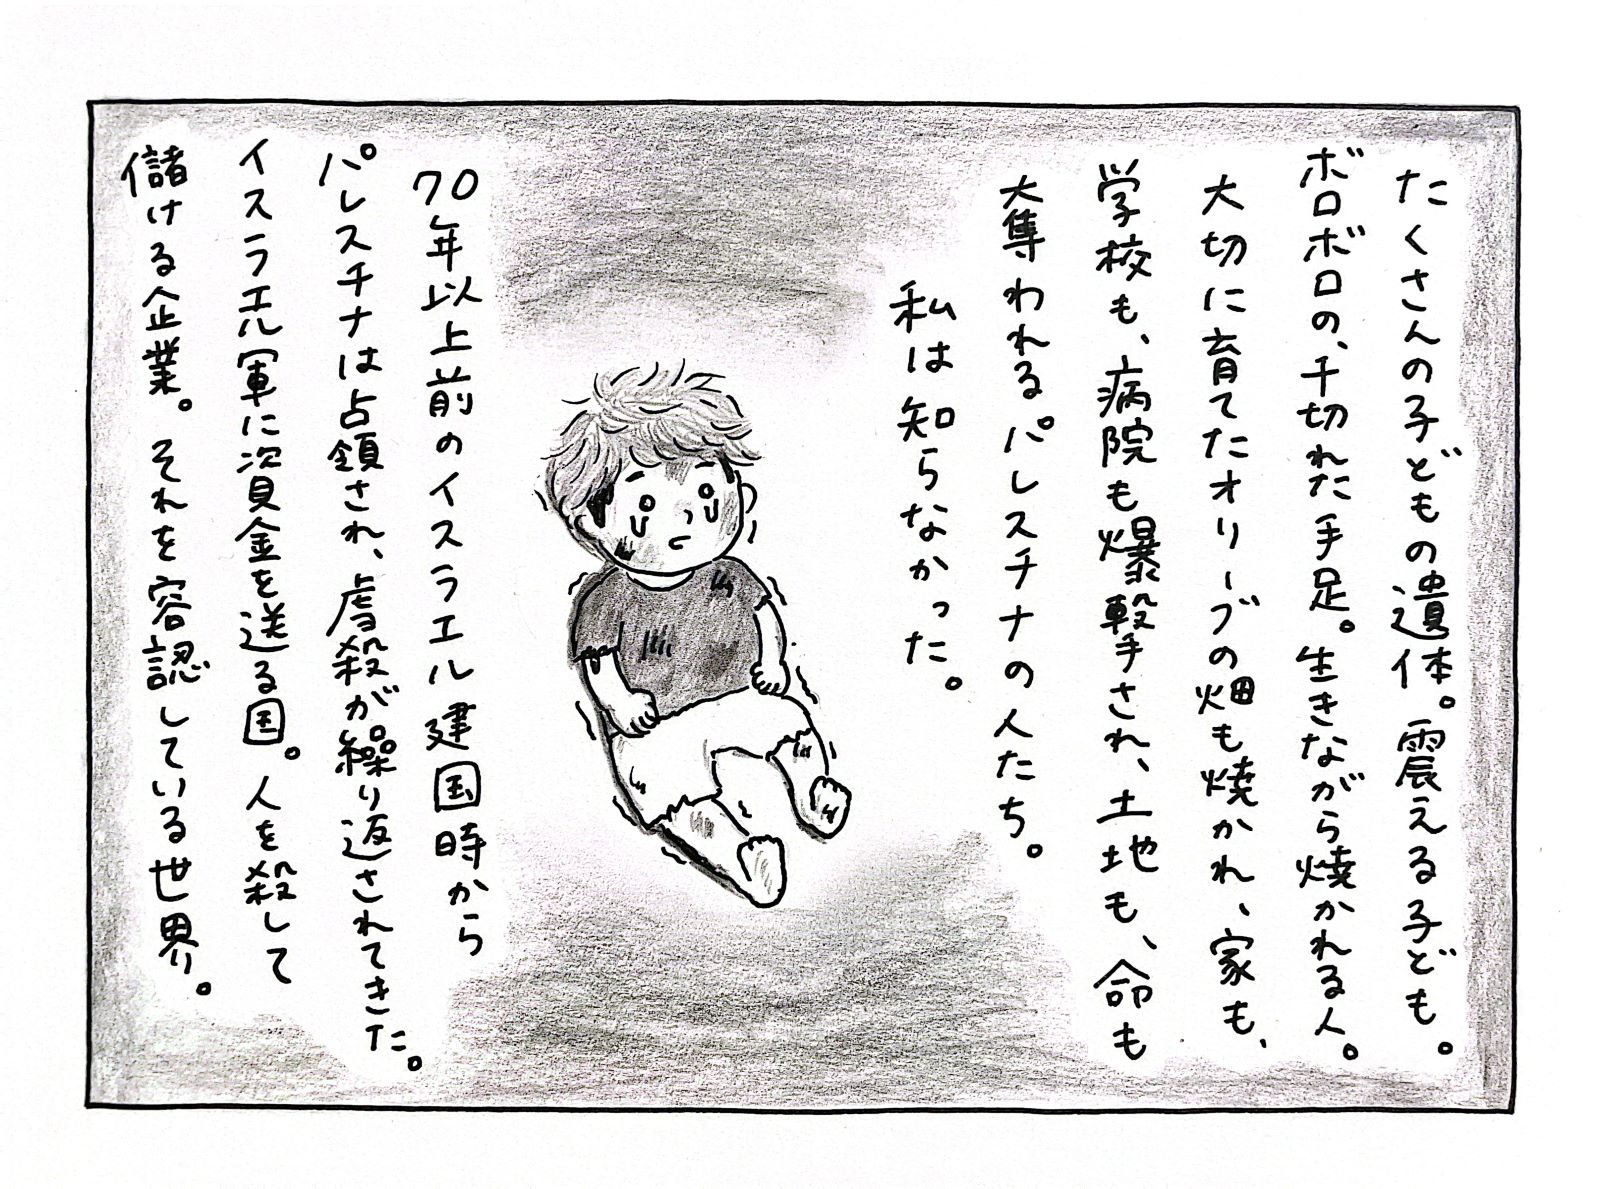 たくさんの子どもの遺体。震える子ども。
ボロボロの、千切れた手足。生きながら焼かれる人。
大切に育てたオリーブの畑も焼かれ、家も、
学校も、病院も爆撃され、土地も、命も
奪われるパレスチナの人たち。
私は知らなかった。
70年以上前のイスラエル建国時から
パレスチナは占領され、虐殺が繰り返されてきた。
イスラエル軍に資金を送る国。人を殺して
儲ける企業。それを容認している世界。